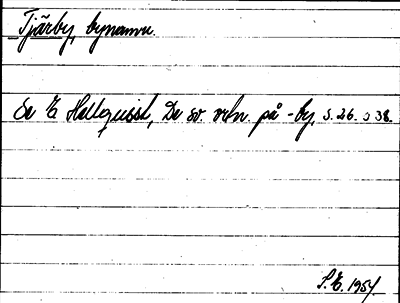 Tjärby, bynamn.
Se E. Hellquist, De sv. ortn. på -by, s. 26. o 38.
S.E. 1954